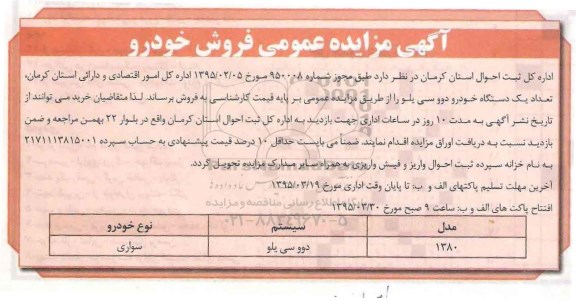 آگهی مزایده عمومی فروش خودرو
اداره کل ثبت احوال استان کرمان در نظر دارد طبق مجوز شماره ۹۵۰۰۰۸ مورخ ۱۳۹۵/۰۲/۰۵ اداره کل امور اقتصادی و دارائی استان کرمان،
تعداد یک دستگاه خودرو دوو سی یلو را از طریق مزایده عمومی بر پایه قیمت کارشناسی به فروش برساند. لذا متقاضیان خرید می توانند از
تاریخ نشر آگهی به مدت ۱۰ روز در ساعات اداری جهت بازدید به اداره کل ثبت احوال استان کرمان واقع در بلوار ۲۲ بهمن مراجعه و ضمن
بازدید نسبت به دریافت اوراق مزایده اقدام نمایند. ضمنا می بایست حداقل ۱۰ درصد قیمت پیشنهادی به حساب سپرده ۲۱۷۱۱۱۳۸۱۵۰۰۱
به نام خزانه سپرده ثبت احوال واریز و فیش واریزی به همراه سایر مدارک مزایده تحویل گردد.
آخرین مهلت تسلیم پاکتهای الف و ب: تا پایان وقت اداری مورخ ۱۳۹۵/۰۳/۱۹
افتتاح پاکت های الف و ب: ساعت ۹ صبح مورخ ۱۳۹۵/۰۳/۳۰
پایگاه اطلاع رسانی مناقصه و مزایده
۰۲۱-۸۸۳۴۹۶۷۰-۵
مدل سیستم نوع خودرو
۱۳۸۰ دوو سی یلو سواری